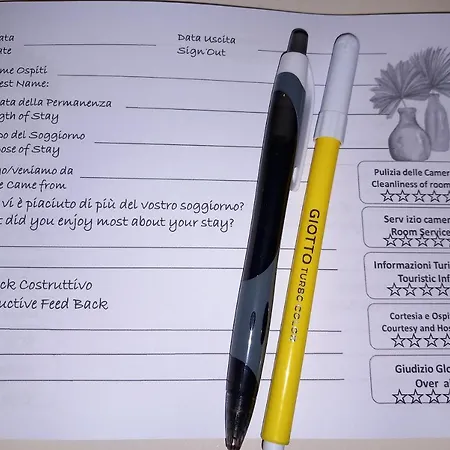 ata
ate
Data Uscita
Sign Out
me Ospiti
est Name:
ata della Permanenza
ngth of Stay
po del Soggiorno
pose of Stay
go/veniamo da
e Came from
vi è piaciuto di più del vostro soggiorno?
t did you enjoy most about your stay?
ck Costruttivo
uctive Feed Back
Pulizia delle Camer
Cleanliness of room
Serv izio camer
Room Service
Informazioni Turi
Touristic Inf
Cortesia e Ospi
Courtesy and Hos
Giudizio Glo
Over a
GIOTTO TURBO COLOR